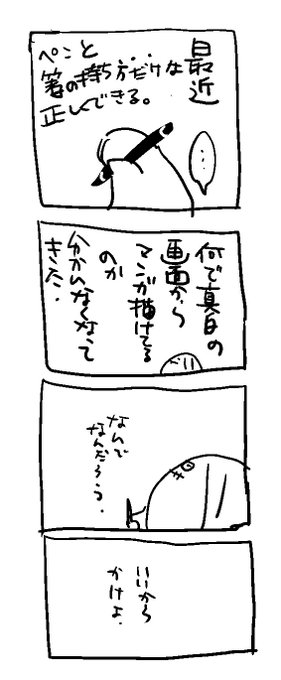 最近
ペンと
箸の持ち方だけは
正しくできる。
…
何で真白の
画面から
マンガ描けてる
のか
分かんなくなって
きた.
なんで
なんだろう.
いいから
かけよ.